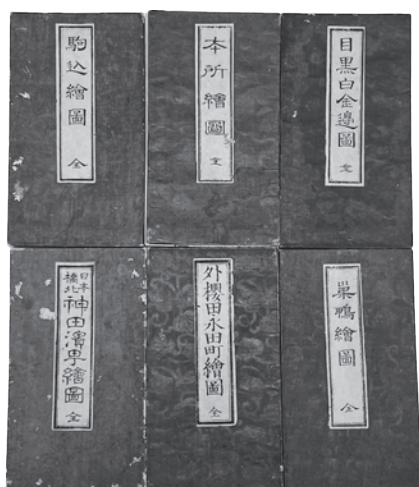 駒込繪圖 全
本所繪圖 完
目黒白金邊圖 完
日本橋北
神田濱町繪圖 全
外櫻田永田町繪圖 全
巣鴨繪圖 全